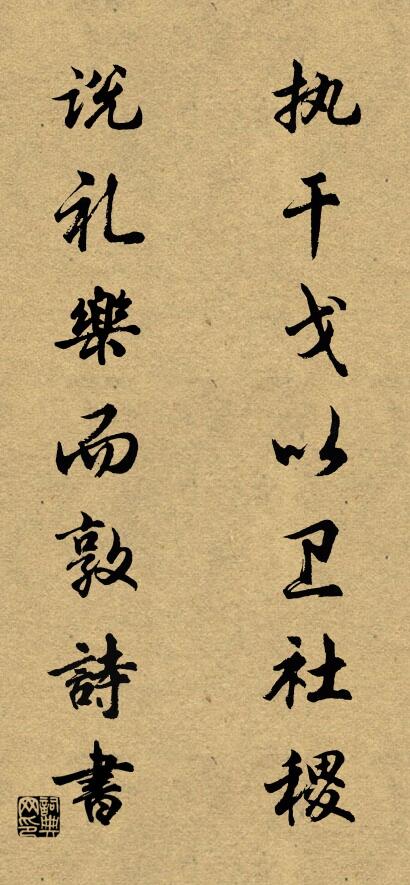 执干戈以卫社稷
说礼樂而敦詩書
詞典网印